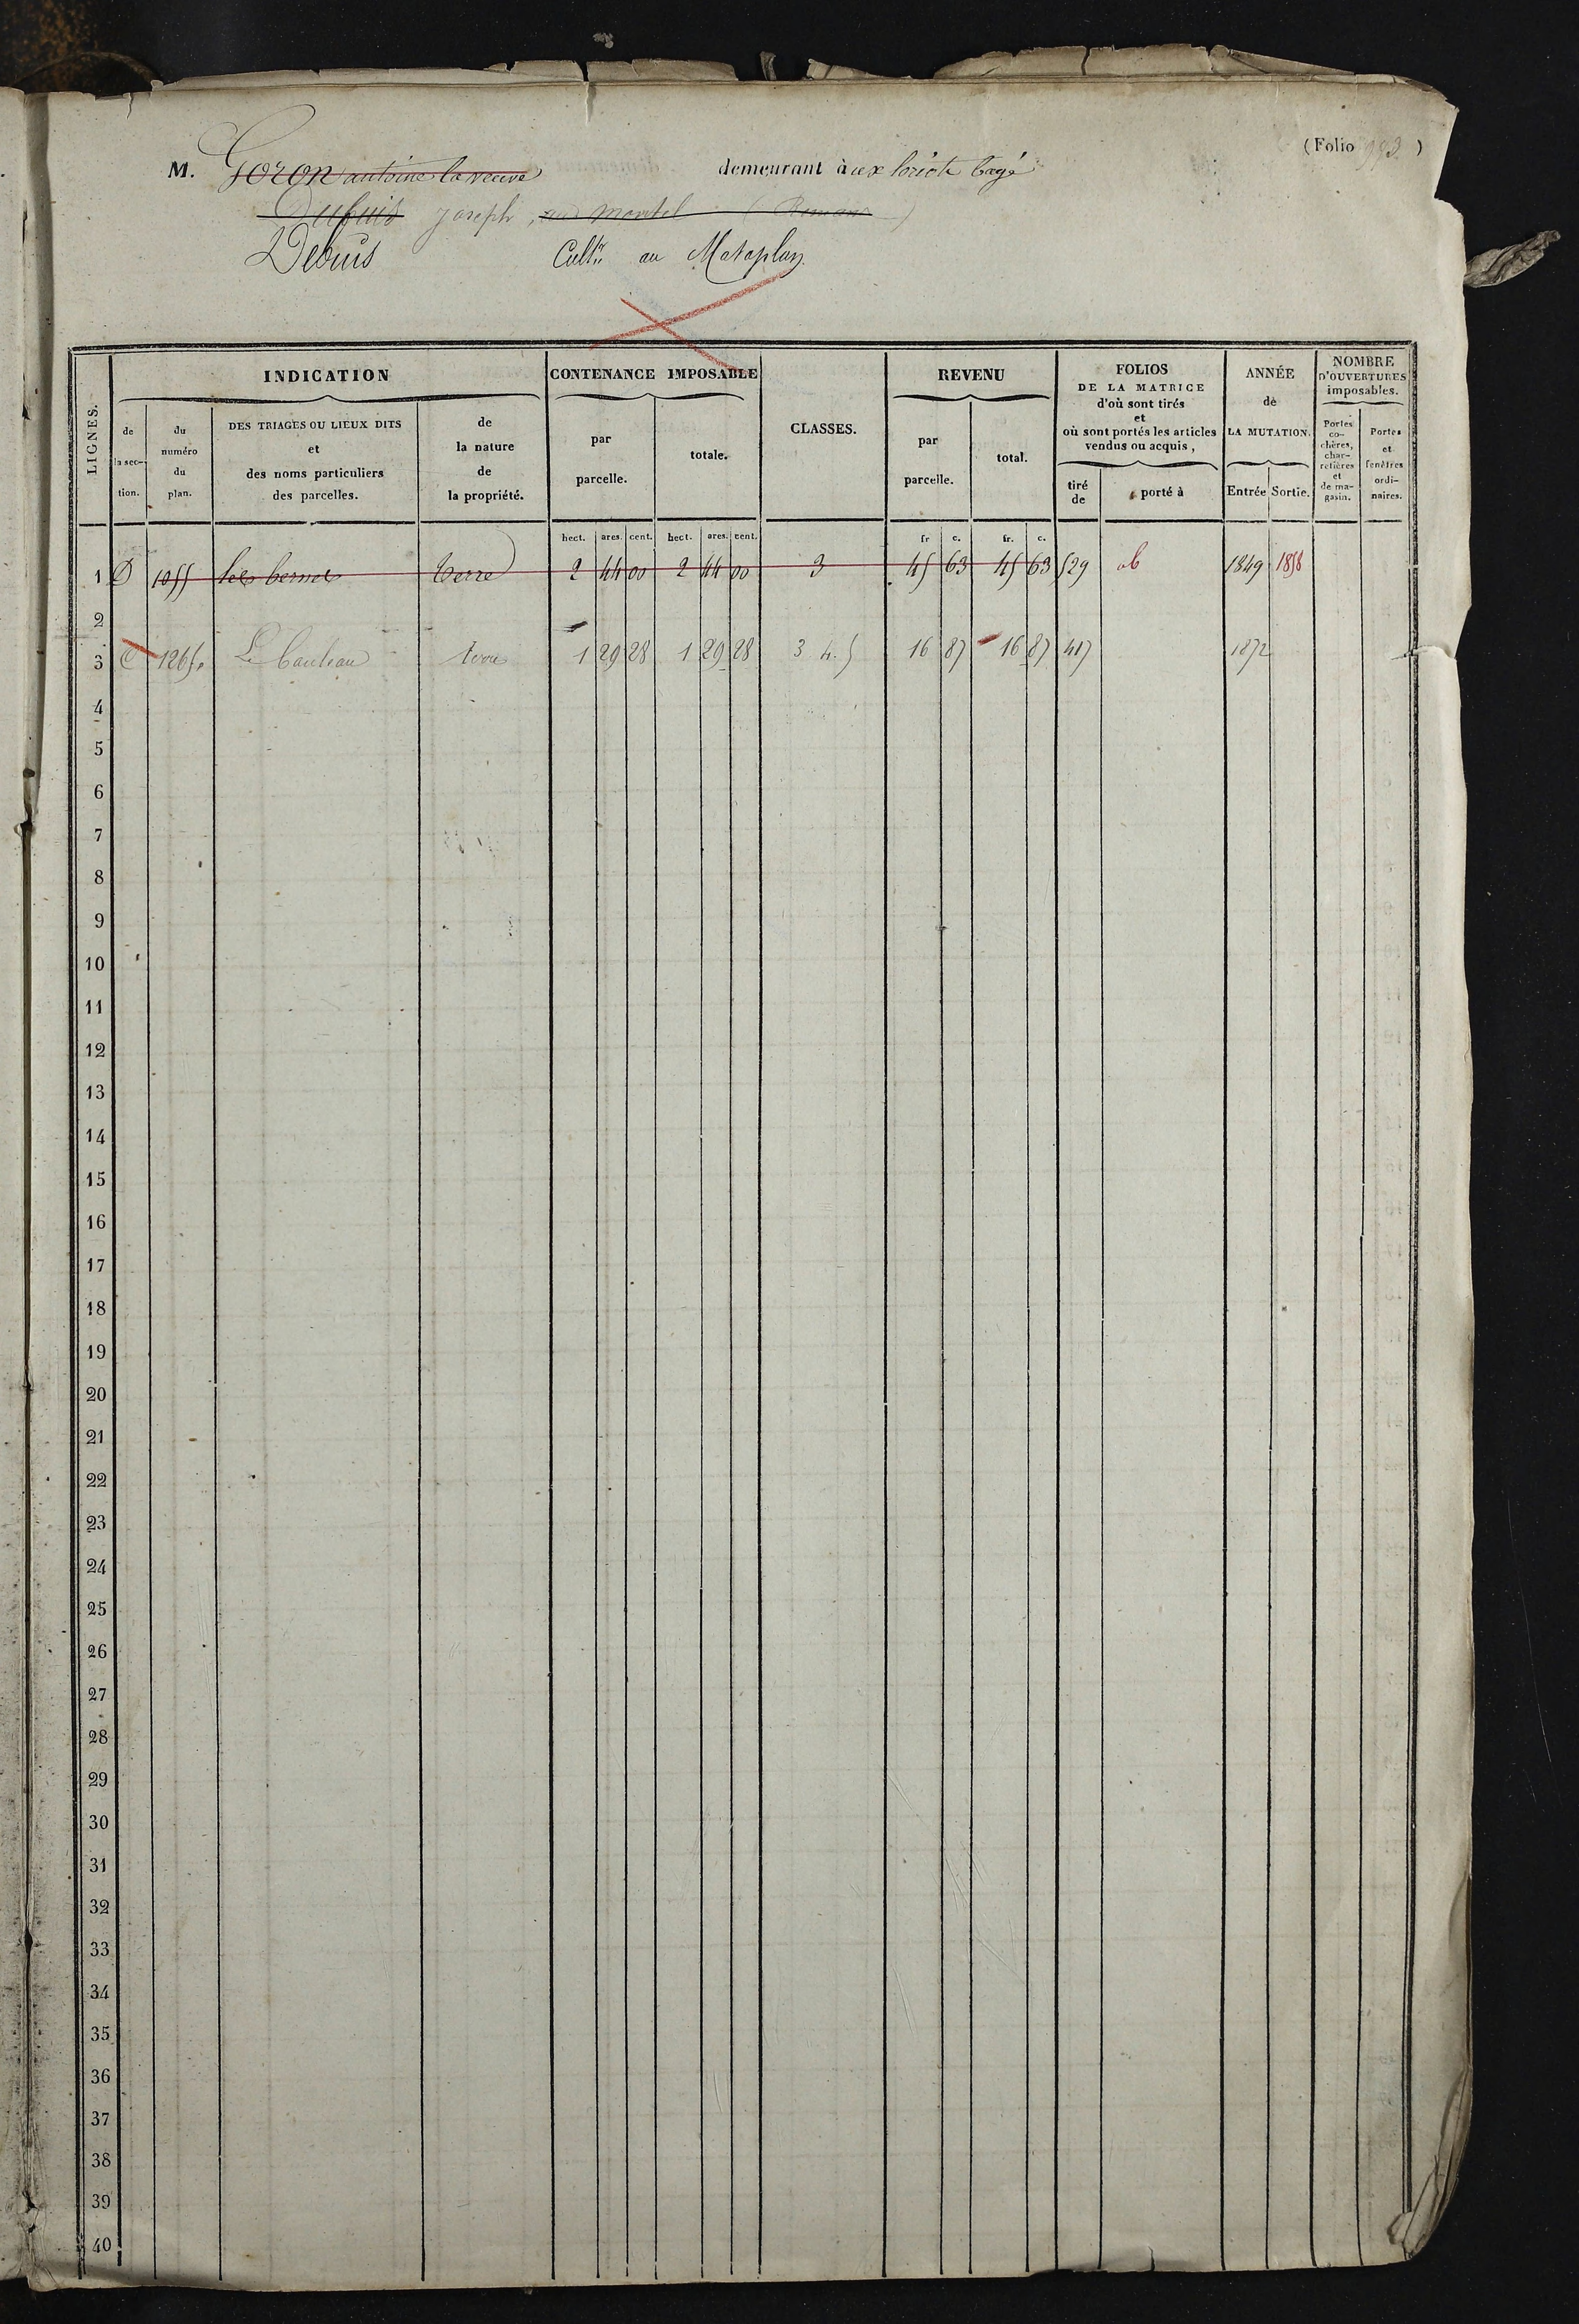 (Folio 993.)
M. Goron antoine la veuve demeurant à aux loriots bagé
Dubuis joseph, au montel (Romans)
Debuis Cultr. au Mataplan
LIGNES.
INDICATION
de la sec- tion.
du numéro du plan.
DES TRIAGES OU LIEUX DITS et des noms particuliers des parcelles.
de la nature de la propriété.
CONTENANCE IMPOSABLE
par parcelle.
totale.
CLASSES.
REVENU
par parcelle.
total.
FOLIOS DE LA MATRICE d'où sont tirés et où sont portés les articles vendus ou acquis,
tiré de
porté à
ANNÉE de LA MUTATION.
Entrée Sortie.
NOMBRE D'OUVERTURES imposables.
Portes co- chères, char- retières et de ma- gasin.
Portes et fenêtres ordi- naires.
hect. ares. cent. hect. ares. cent. fr c. fr. c.
1 D 1055 les bernes terre 2 44 00 2 44 00 3 45 63 45 63 529 1849 1858
2
3 C 1265 terre 1 29 28 1 29 28 3 4. 5 16 87 16 87 417 1872
4
5
6
7
8
9
10
11
12
13
14
15
16
17
18
19
20
21
22
23
24
25
26
27
28
29
30
31
32
33
34
35
36
37
38
39
40